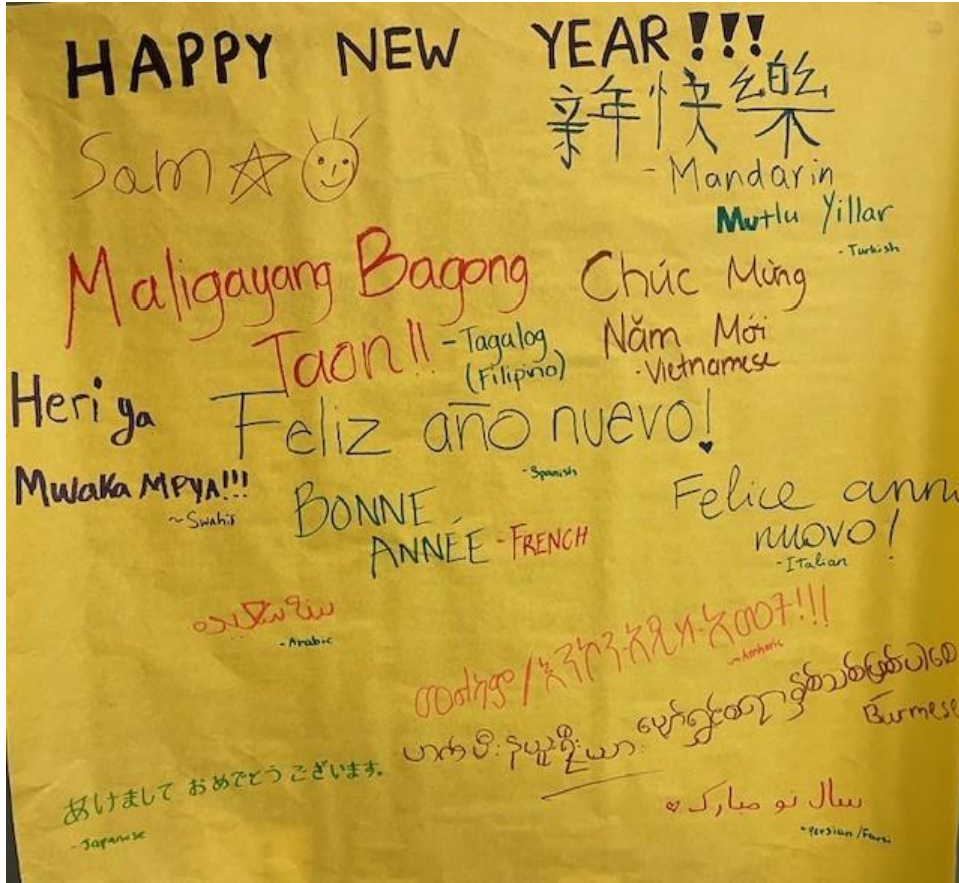 HAPPY NEW YEAR!!!
新年快樂
Sam
- Mandarin
Mutlu Yillar
- Turkish
Maligayang Bagong
Taon!! - Tagalog
(Filipino)
Chúc Mừng
Năm Mới
- Vietnamese
Heri ya
Mwaka MPYA!!!
~ Swahili
Feliz año nuevo!
- Spanish
BONNE
ANNÉE - FRENCH
Felice ann
nuovo!
- Italian
سنة سعيدة
- Arabic
እንኳን አዲስ አመት!!!
~ Amharic
ဟက်ပီး နယူးရီးယား
Burmese
あけまして おめでとう ございます。
- Japanese
سال نو مبارک
- Persian/Farsi